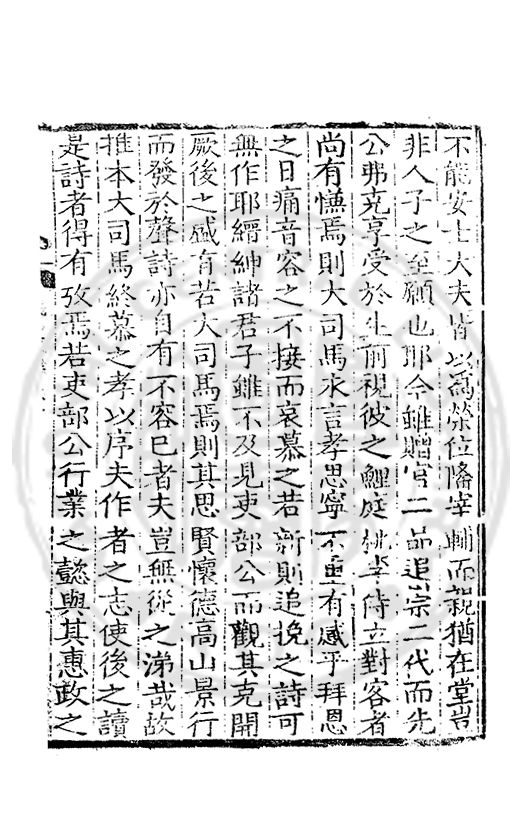 不能安士大夫皆以為榮位隮宰輔而親猶在堂豈
非人子之至願也耶今雖贈官二品追宗二代而先
公弗克享受於生前視彼之鯉庭桃李侍立對客者
尚有慊焉則大司馬永言孝思寧不重有感乎拜恩
之日痛音容之不接而哀慕之若新則追挽之詩可
無作耶縉紳諸君子雖不及見吏部公而觀其克開
厥後之盛有若大司馬焉則其思賢懷德高山景行
而發於聲詩亦自有不容巳者夫豈無從之涕哉故
推本大司馬終慕之孝以序夫作者之志使後之讀
是詩者得有攷焉若吏部公行業之懿與其惠政之